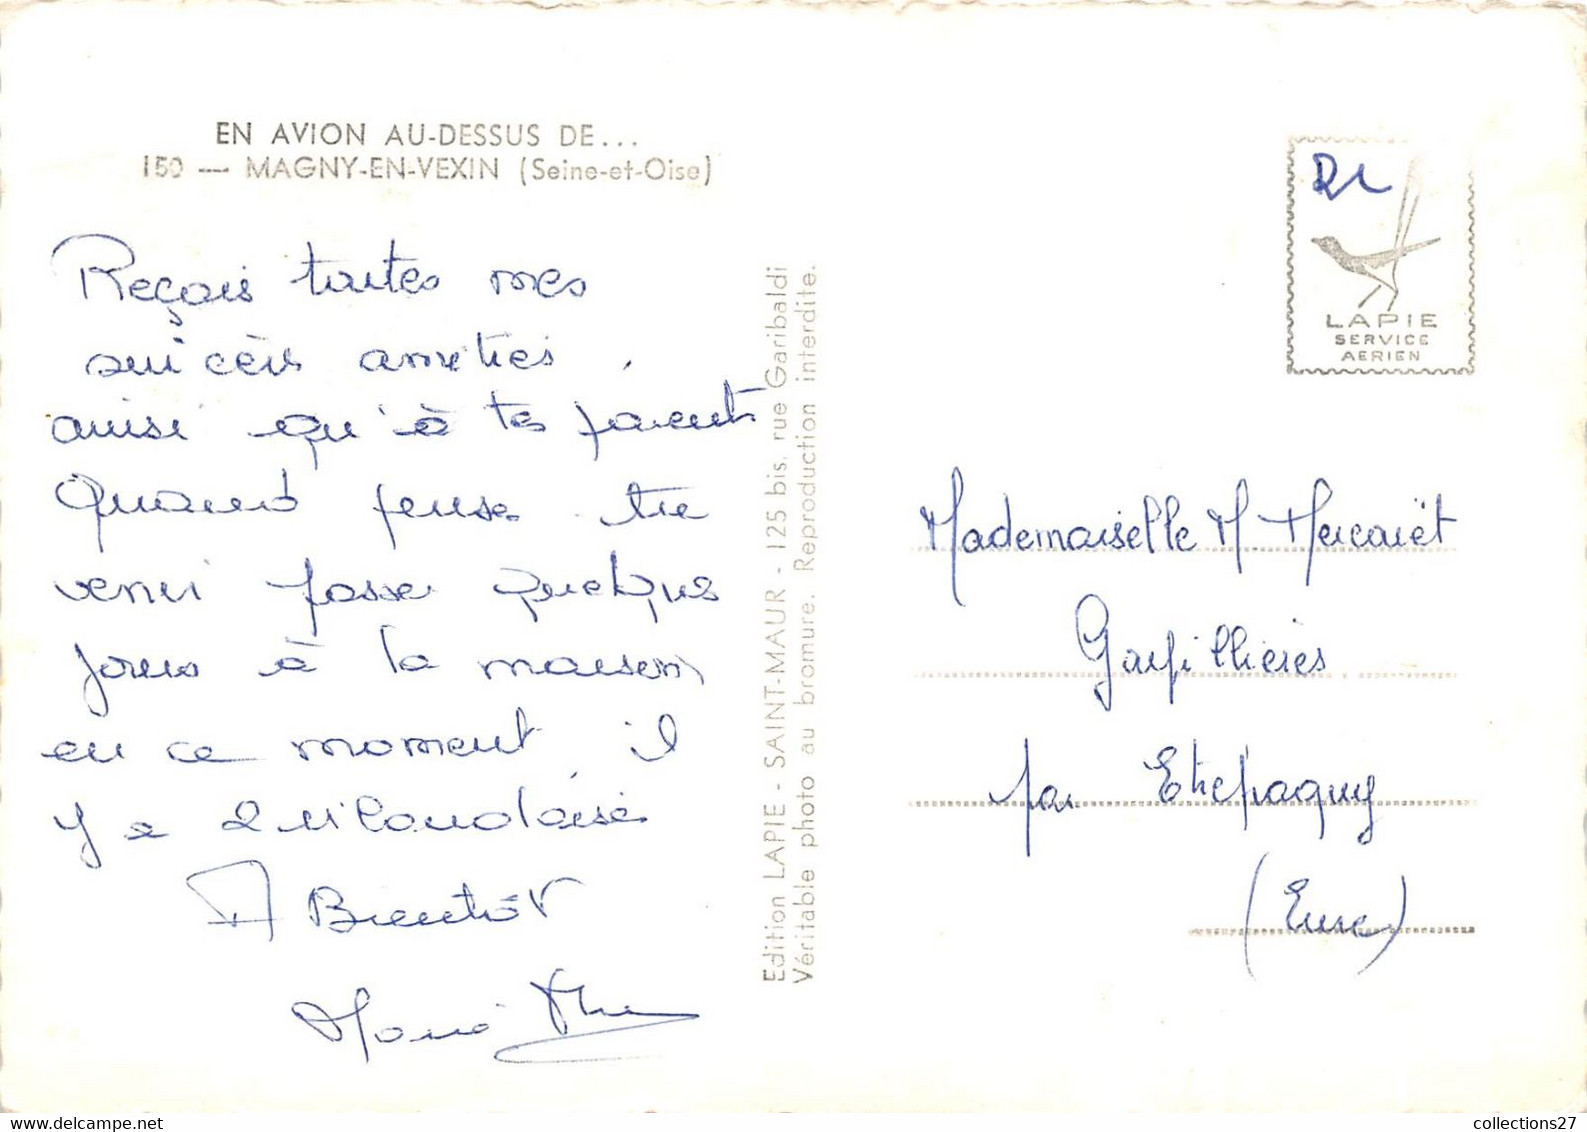 EN AVION AU-DESSUS DE...
150 — MAGNY-EN-VEXIN (Seine-et-Oise)
Reçois toutes mes
sincères amitiés,
ainsi qu'à tes parents
Quand pense tu
venir passer quelques
jours à la maison
en ce moment, il
y a 2 irlandaises
A Bientôt
Marie
Edition LAPIE - SAINT-MAUR - 125 bis, rue Garibaldi
Véritable photo au bromure. Reproduction interdite.
LAPIE
SERVICE
AERIEN
Mademoiselle M.
Gaupillières
par Etrépagny
(Eure)
collections27